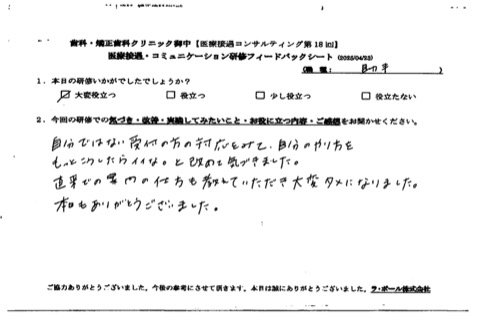 歯科・矯正歯科クリニック御中【医療接遇コンサルティング第18回】
医療接遇・コミュニケーション研修フィードバックシート (2025/04/23)
(職種: 助手)
1. 本日の研修いかがでしたでしょうか?
☑ 大変役立つ □ 役立つ □ 少し役立つ □ 役立たない
2. 今回の研修での気づき・改善・実践してみたいこと・お役に立つ内容・ご感想をお聞かせください。
自分ではない受付の方の対応をみて、自分のやり方を
もっとこうしたらイイな。と改めて気づきました。
道案での案内の仕方も教えていただき大変タメになりました。
本日もありがとうございました。
ご協力ありがとうございました。今後の参考にさせて頂きます。本日は誠にありがとうございました。ラ・ポール株式会社